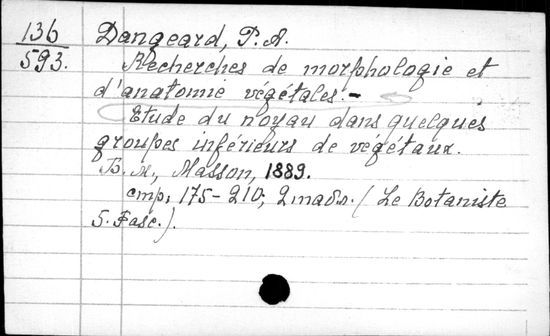 136
593.
Dangeard, P.A.
Recherches de morphologie et
d'anatomie végétales.-
Etude du noyau dans quelques
groupes inférieurs de végétaux.
Masson, 1889.
стр, 175-210, 2 табл. (Le Botaniste
5. Fasc.).